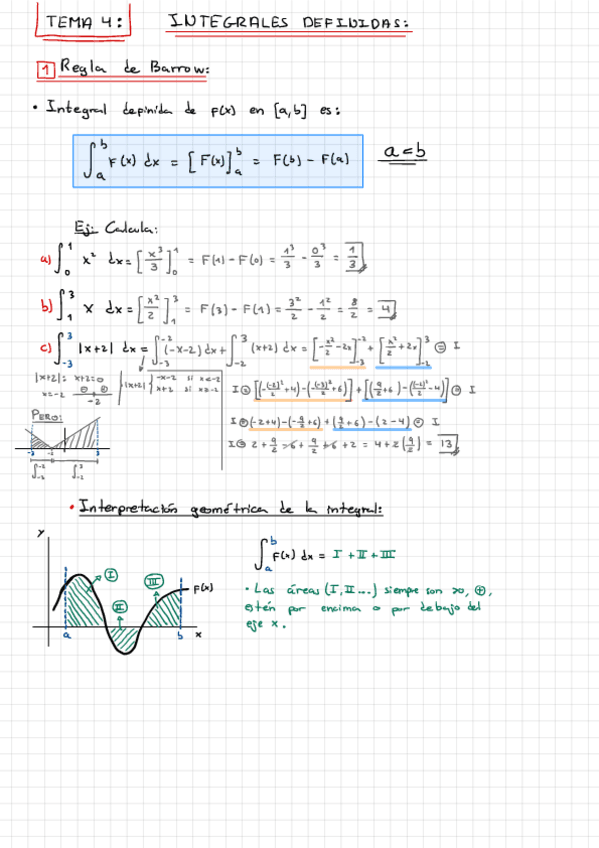 TEMA 4: INTEGRALES DEFINIDAS:
1 Regla de Barrow:
• Integral definida de f(x) en [a,b] es:
∫_a^b f(x) dx = [F(x)]_a^b = F(b) - F(a)
a<b
Ej: Calcula:
a) ∫_0^1 x² dx = [x³/3]_0^1 = F(1) - F(0) = 1³/3 - 0³/3 = 1/3
b) ∫_1^3 x dx = [x²/2]_1^3 = F(3) - F(1) = 3²/2 - 1²/2 = 8/2 = 4
c) ∫_-3^3 |x+2| dx = ∫_-3^-2 (-x-2) dx + ∫_-2^3 (x+2) dx = [-x²/2 - 2x]_-3^-2 + [x²/2 + 2x]_-2^3 = I
|x+2|: x+2=0
x=-2
-2
|x+2| { -x-2 si x<-2
x+2 si x≥-2
I = [(-(-2)²/2 +4) - (-(-3)²/2 +6)] + [(9/2 +6) - ((-2)²/2 -4)] = I
PERO:
-3 -2 3
∫_-3^-2 ∫_-2^3
I = (-2+4) - (-9/2 +6) + (9/2 +6) - (2-4) = I
I = 2 + 9/2 - 6 + 9/2 + 6 + 2 = 4 + 2(9/2) = 13
• Interpretación geométrica de la integral:
y
I
II
III
f(x)
a b x
∫_a^b f(x) dx = I + II + III
• Las áreas (I, II...) siempre son >0, ⊕,
estén por encima o por debajo del
eje x.